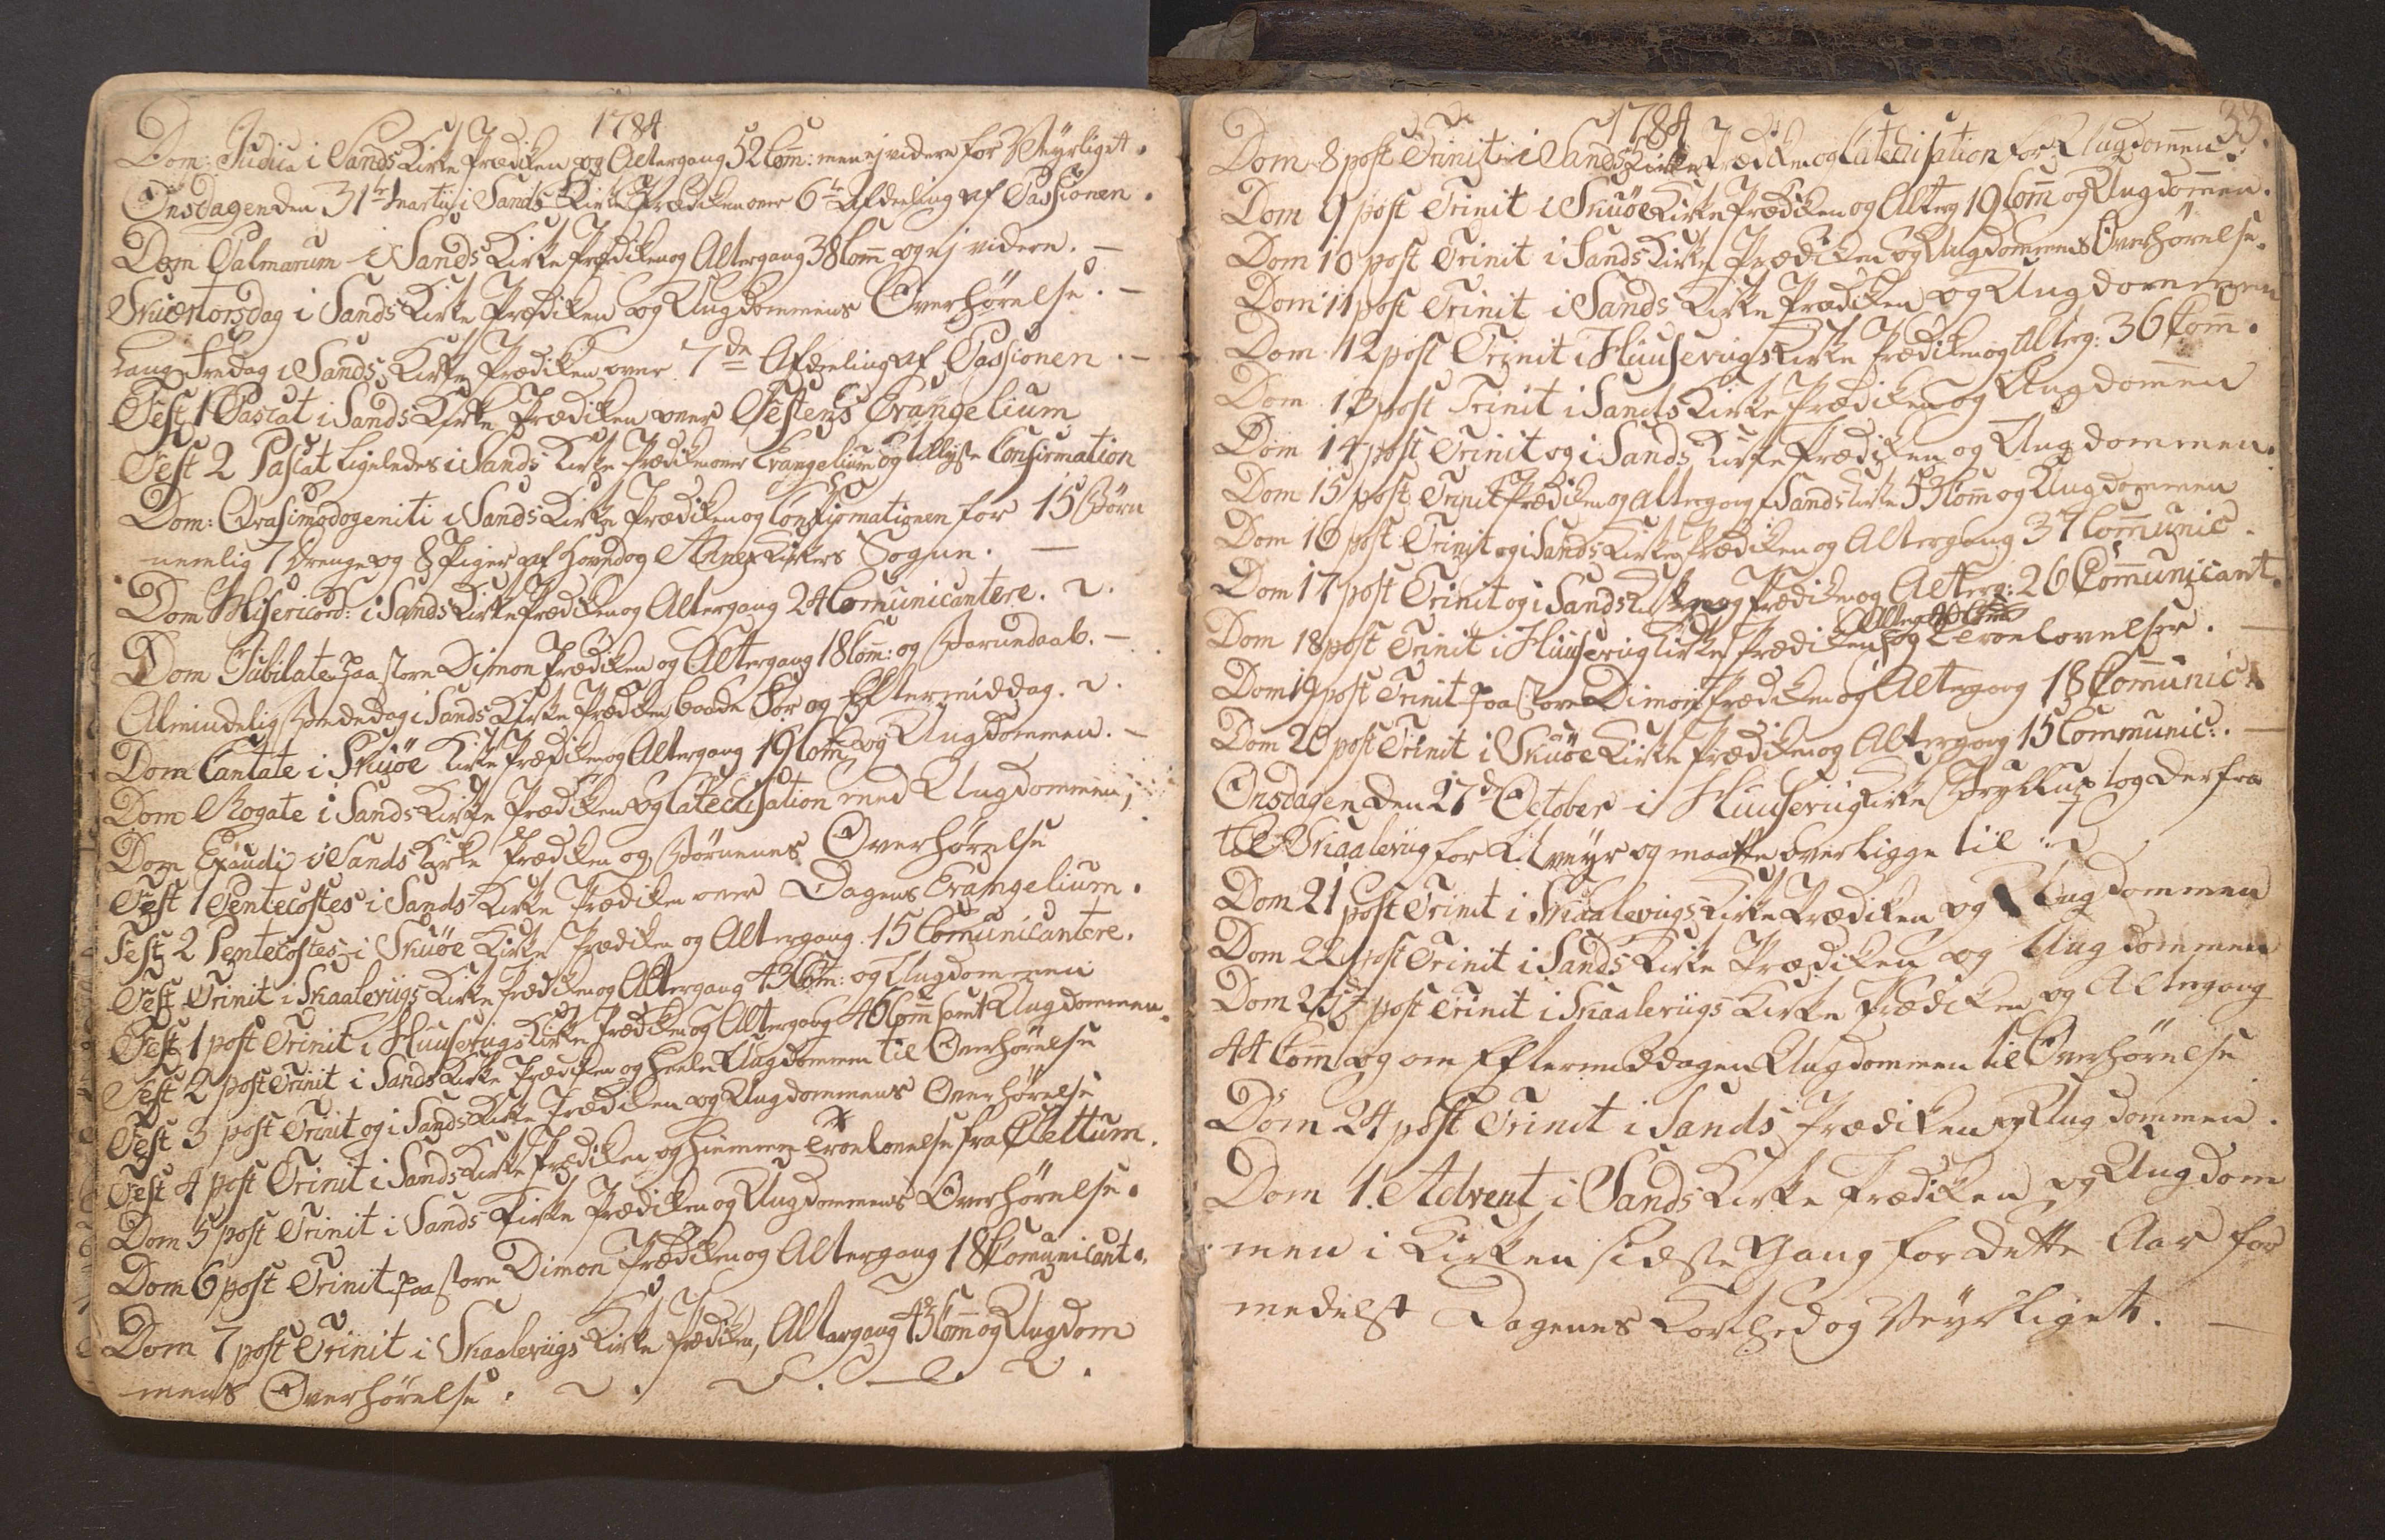 1784
Dom: Judica i Sands Kirke Prædiken og Altergang 52 Com̄: men ej videre for Veyrliget.
Onsdagen den 31te Martij i Sands Kirke Prædiken over 6te Afdeeling af Passionen.
Dom Palmarum i Sands Kirke Prædiken og Altergang 38 Com̄ og ej videre. —
Skiærtorsdag i Sands Kirke Prædiken og Ungdommens Overhørelse. —
Lang Fredag i Sands Kirke Prædiken over 7de Afdeeling af Passionen. —
Fest 1 Pascat i Sands Kirke Prædiken over Festens Evangelium
Fest 2 Pascat ligeledes i Sands Kirke Prædiken over Evangelium og tillyste Confirmation
Dom: Qvasimodogeniti i Sands Kirke Prædiken og Confirmationen for 15 Børn
nemlig 7 Drenge og 8 Piger af Hoved og Annex Kirkers Sogne. —
Dom Misericord: i Sands Kirke Prædiken og Altergang 24 Com̄unicantere.
Dom Jubilate paa store Dimon Prædiken og Altergang 18 Com̄: og Barnedaab. —
Almindelig Bededag i Sands Kirke Prædiken baade For og Eftermiddag.
Dom Cantate i Skuøe Kirke Prædiken og Altergang 19 Com̄ og Ungdommen. —
Dom Rogate i Sands Kirke Prædiken og Catechisation med Ungdommen,
Dom Exaudi i Sands Kirke Prædiken og Børnenes Overhørelse
Fest 1 Pentecostes i Sands Kirke Prædiken over Dagens Evangelium.
Fest 2 Pentecostes i Skuøe Kirke Prædiken og Altergang 15 Com̄unicantere.
Fest Trinit i Skaalevügs Kirke Prædiken og Altergang 43 Com̄: og Ungdommen
Fest 1 post Trinit i Huusevügs Kirke Prædiken og Altergang 40 Com̄ samt Ungdommen.
Fest 2 post Trinit i Sands Kirke Prædiken og heele Ungdommen til Overhørelse
Fest 3 post Trinit og i Sands Kirke Prædiken og Ungdommens Overhørelse
Fest 4 post Trinit i Sands Kirke Prædiken og hiemme Troelovelse fra Clettum.
Dom 5 post Trinit i Sands Kirke Prædiken og Ungdommens Overhørelse.
Dom 6 post Trinit paa store Dimon Prædiken og Altergang 18 Com̄unicant.
Dom 7 post Trinit i Skaalevügs Kirke Prædiken, Altergang 43 Com̄ og Ungdom
mens Overhørelse.
1784
33.
Dom 8 post Trinit i Sands Kirke Prædiken og Catechisation for Ungdom̄en
Dom 9 post Trinit i Skuøe Kirke Prædiken og Alterg 19 Com̄ og Ungdom̄en.
Dom 10 post Trinit i Sands Kirke Prædiken og Ungdommens Overhørelse.
Dom 11 post Trinit i Sands Kirke Prædiken og Ungdommen
Dom 12 post Trinit i Huusevügs Kirke Prædiken og Alterg: 36 Com̄.
Dom 13 post Trinit i Sands Kirke Prædiken og Ungdom̄en
Dom 14 post Trinit og i Sands Kirke Prædiken og Ungdommen.
Dom 15 post Trinit Prædiken og Altergang i Sands Kirke 53 Com̄ og Ungdommen
Dom 16 post Trinit og i Sands Kirke Prædiken og Altergang 37 Com̄unic.
Dom 17 post Trinit og i Sands Kirke Prædiken og Alterg: 26 Com̄unicant.
Dom 18 post Trinit i Huusevüg Kirke Prædiken og Troelovelser. —
Dom 19 post Trinit paa store Dimon Prædiken og Altergang 18 Com̄unic
Dom 20 post Trinit i Skuøe Kirke Prædiken og Altergang 15 Communic:. —
Onsdagen den 27d October i Huusevüg Kirke Bryllup tog derfra
til Skaalevüg for Uveyr og maatte overligge til
Dom 21 post Trinit i Skaalevügs Kirke Prædiken og Ungdommen
Dom 22 post Trinit i Sands Kirke Prædiken og Ungdommen
Dom 23 post Trinit i Skaalevügs Kirke Prædiken og Altergang
44 Com̄ og om Eftermiddagen Ungdommen til Overhørelse
Dom 24 post Trinit i Sands Prædiken og Ungdommen.
Dom 1. Advent i Sands Kirke Prædiken og Ungdom
men i Kirken sidste Gang for dette Aar for
medelst Dagenes Korthed og Veyrliget. —